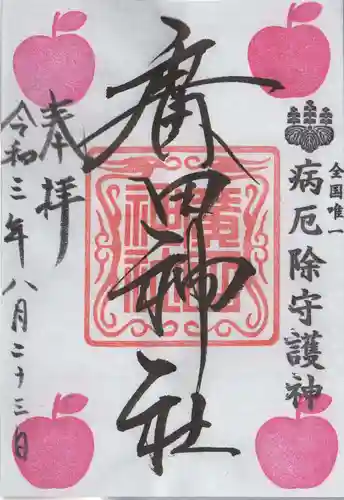 全国唯一
病厄除守護神
廣田神社
廣田
神社
奉拝
令和三年八月二十三日